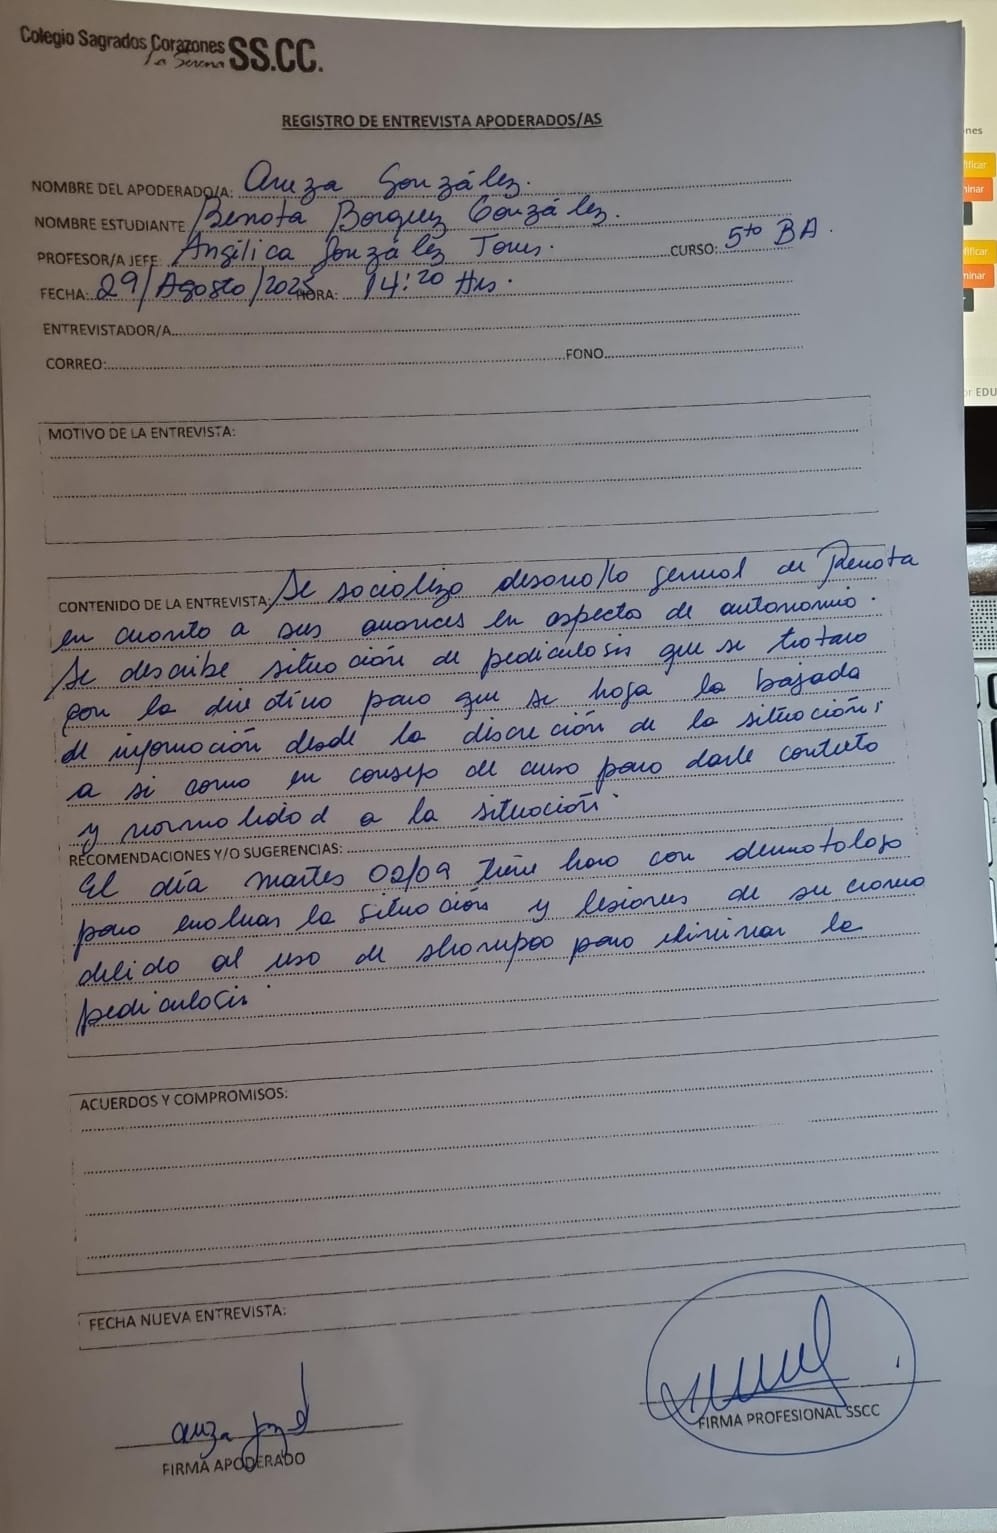 Colegio Sagrados Corazones SS.CC.
La Serena
REGISTRO DE ENTREVISTA APODERADOS/AS
NOMBRE DEL APODERADO/A: González.
NOMBRE ESTUDIANTE Renata Borquez González.
PROFESOR/A JEFE: Angélica González Torres. CURSO: 5to BA.
FECHA: 29/Agosto/2025 HORA: 14:20 Hrs.
ENTREVISTADOR/A
CORREO: FONO
MOTIVO DE LA ENTREVISTA:
CONTENIDO DE LA ENTREVISTA: Se socializo desarrollo general de Renata
en cuanto a sus avances en aspecto de autonomia.
Se describe situación de pediculosis que se tratara
con la directiva para que se haga la bajada
de información desde la discreción de la situación;
a si como en consejo de curso para darle contexto
y normalidad a la situación.
RECOMENDACIONES Y/O SUGERENCIAS:
El día martes 02/09 tiene hora con dermatologo
para evaluar la situación y lesiones de su craneo
debido al uso de shampoo para eliminar la
pediculosis.
ACUERDOS Y COMPROMISOS:
FECHA NUEVA ENTREVISTA:
FIRMA APODERADO
FIRMA PROFESIONAL SSCC
nes
ificar
inar
ificar
minar
or EDU